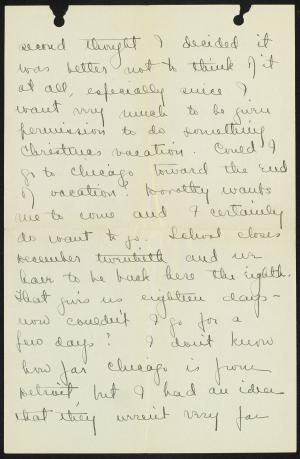 second thought I decided it
was better not to think of it
at all, especially since I
want very much to be given
permission to do something
Christmas vacation. Could I
go to Chicago toward the end
of vacation? Dorothy wants
me to come and I certainly
do want to go. School closes
December twentieth and we
have to be back here the eighth.
That gives us eighteen days –
now couldn't I go for a
few days? I don't know
how far Chicago is from
Detroit, but I had an idea
that they weren't very far